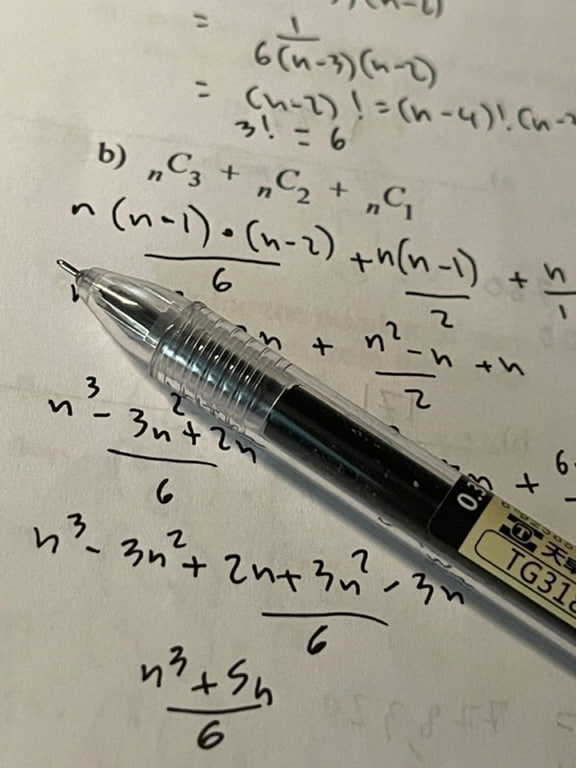 = 1
6(n-3)(n-2)
= (n-2)! = (n-4)!.(n-
3! = 6
b) nC3 + nC2 + nC1
n(n-1)·(n-2)/6 + n(n-1)/2 + n/1
n + n²-n/2 + n
n³ - 3n² + 2n/6
+ 6
n³ - 3n² + 2n + 3n² - 3n/6
n³ + 5n/6
0.35
天卓
TG318